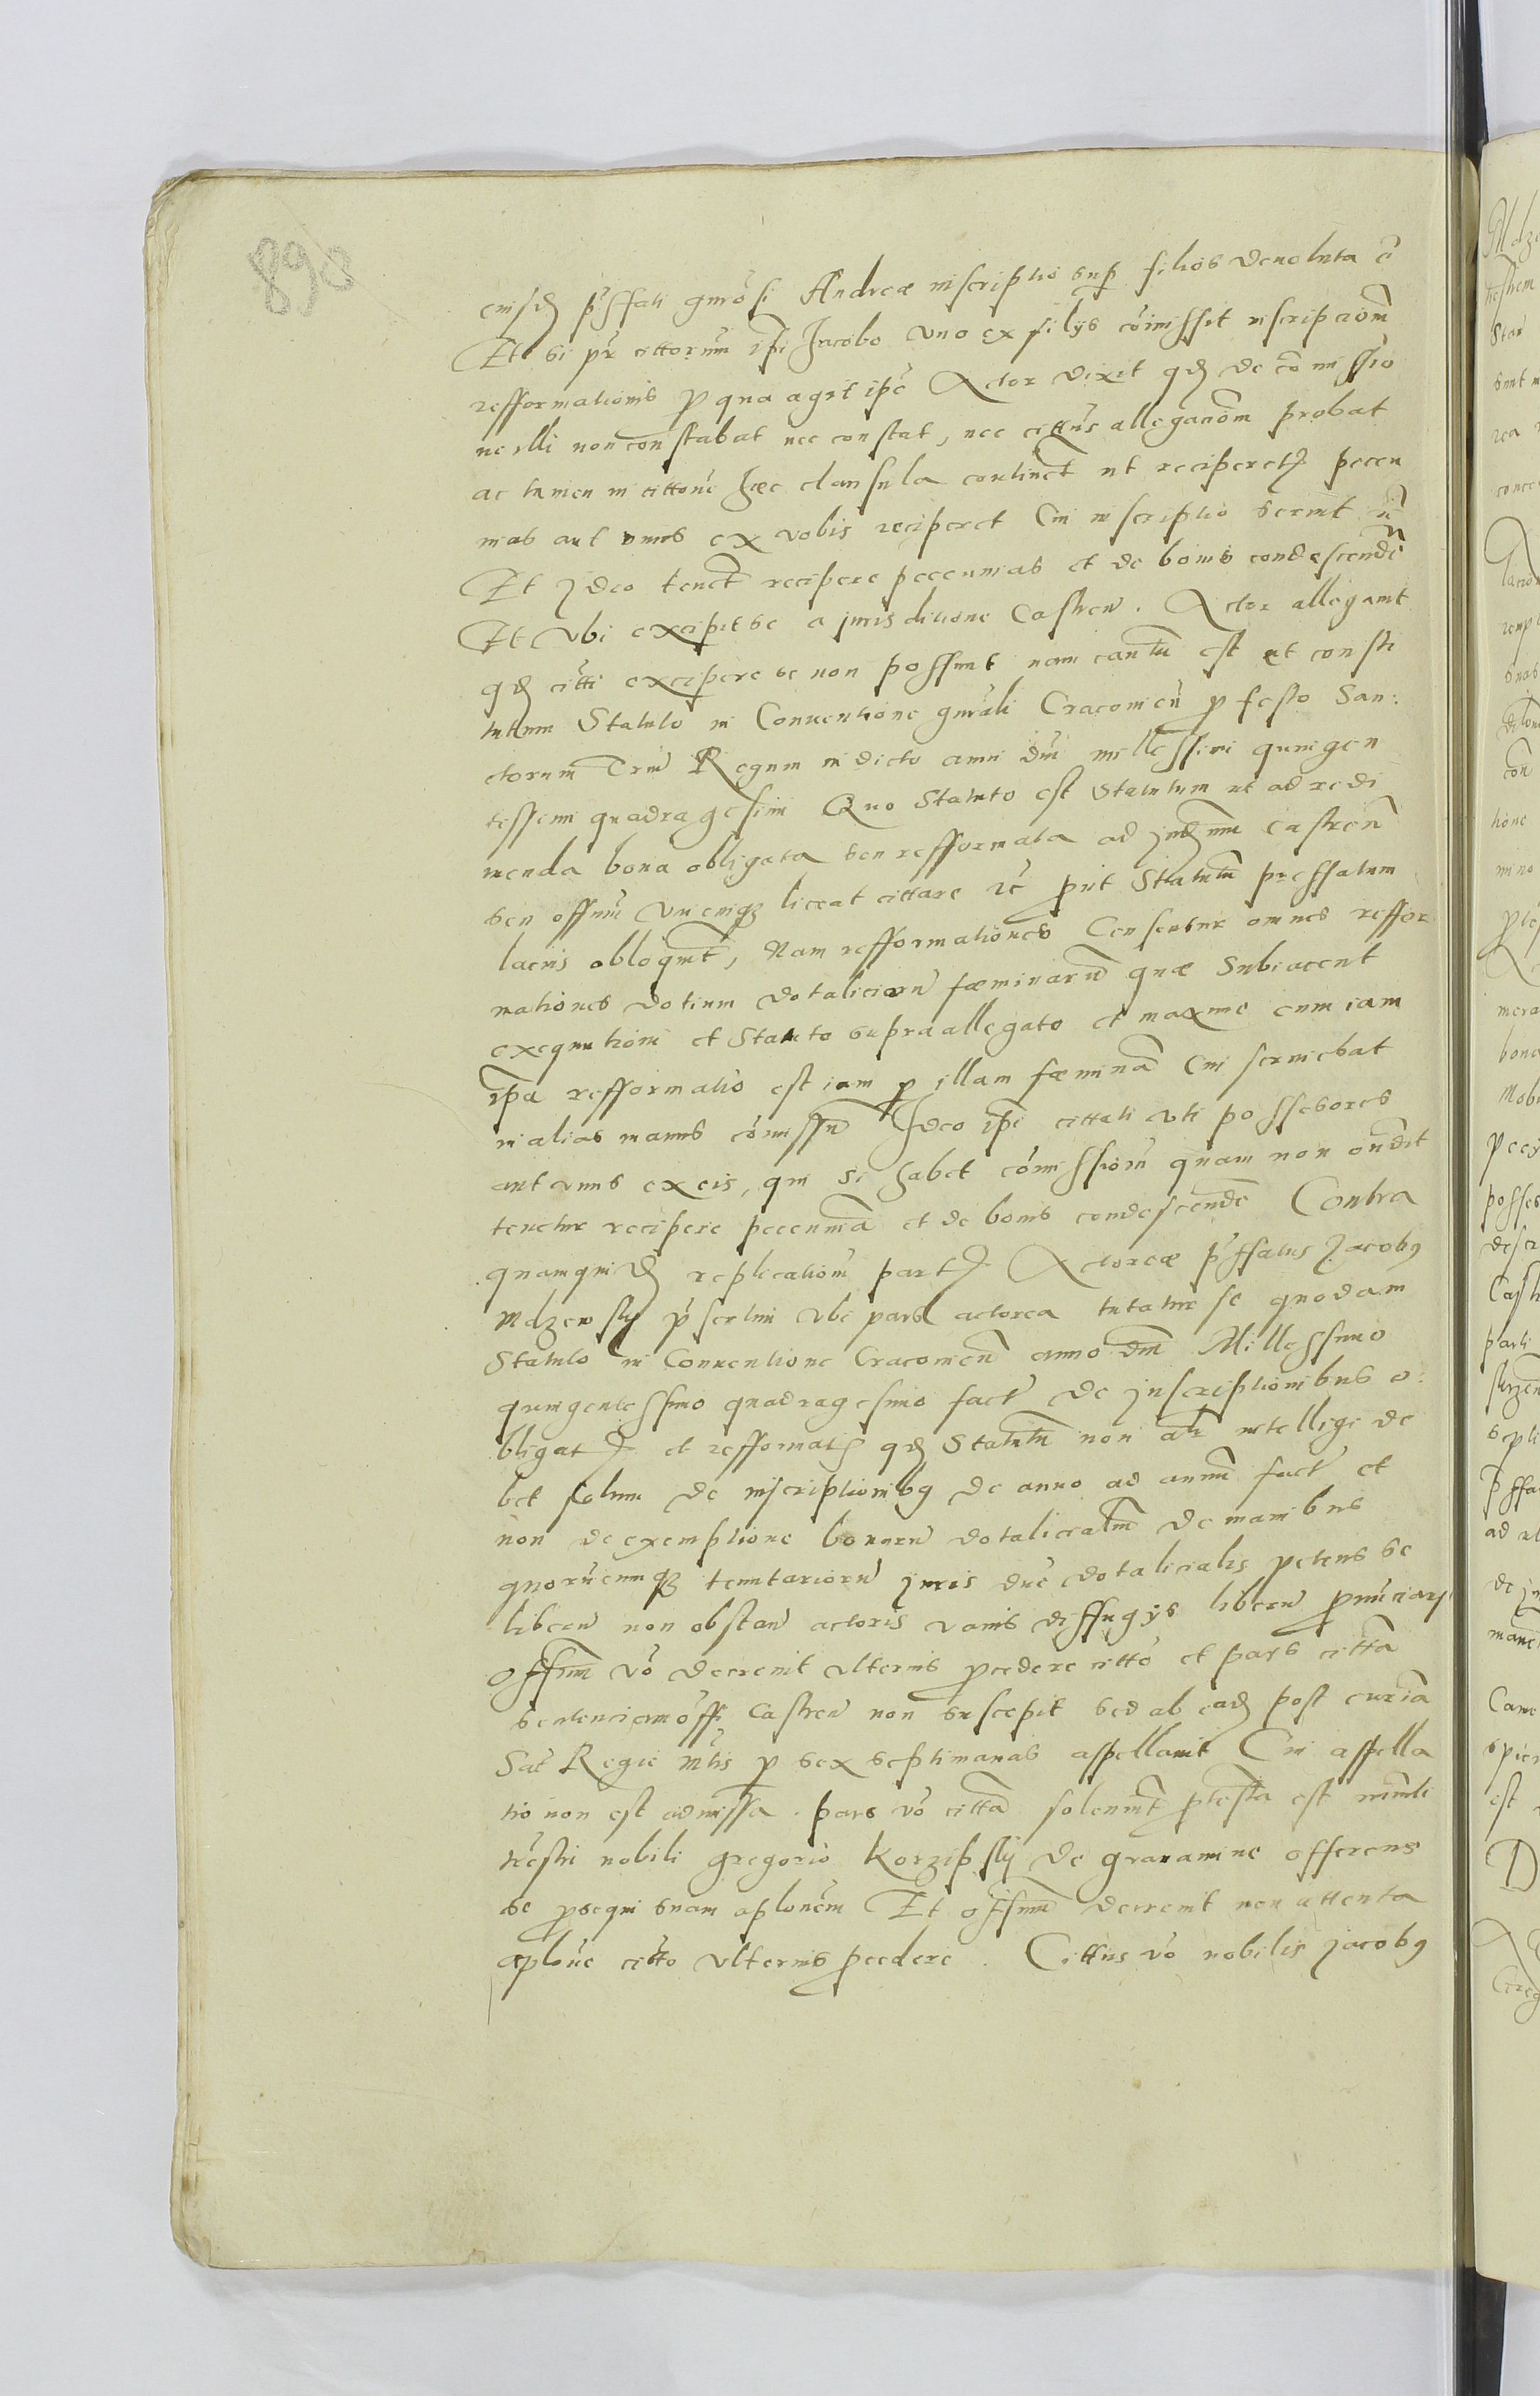 890
eiusd pffati gnrosi Andreæ inscriptio sup filios devoluta ē
Et si pr cittorum ipi Jacobo uno ex filijs cōmissit inscripcionm
refformationis p qua agit ipe Actor dixit qd de cōmissio
ne illi non constabat nec constat, nec cittus allegacionm probat
ac tamen in cittone hæc clausula continet ut reciperet pecu
nias aut unus ex vobis reciperet Cui inscriptio servit
Et ideo tenet recipere pecunias et de bonis condescendē
Et ubi excipit se a jurisditione Castren. Actor allegavit
qd citti excipere se non possunt nam cautu est et consti
tutum Statuto in Conventione gnrali Cracovien p festo San:
ctorum Triu Regum indicto anni dni millessimi quingen
tessimi quadragesimi Quo Statuto est Statutum ut ad redi
menda bona obligata seu refformata ad judium castren
seu offum unicuiqz liceat cittare &c prut Statutu preffatum
lacius obloquit, Nam refformationes Censentur omnes reffor
mationes dotium dotaliciorū fæminarū quæ Subiacent
exequutioni et Statuto supra allegato et maxime cum iam
ipa refformatio est iam p illam fæminā Cui serviebat
in alias manus cōmissa Ideo ipi cittati uti possesores
aut unus ex eis, qui si habet cōmissionē quam non ondit
tenetur recipere pecuniā et de bonis condescendē Contra
quamquid replicationē part Actoreæ pffatus Jacobg
Mdzewsky psertim ubi pars actorea tutatur se quodam
Statuto in Conventione Cracovien anno dni Millessimo
quingentessimo quadragesimo fact de jnscriptionibus o:
bligat et refformat qd Statutu non alr intellige de
bet solum de inscriptionibg de anno ad annū fact et
non de exemptione bonorū dotalicialiu de manibus
quorūcumqz tenutariorū juris due dotalicialis petens se
liberū non obstan actoris vanis diffugijs liberū pnuciarj
Offium vo decrevit ulterius pcedere citto et pars citta
sentenciam offi Castren non suscepit sed ab ead post curiā
Sac Regie Mtis p sex septimanas appellavit Cui appella
tio non est admissa. pars vo citta solennit ptesta est minli
trestri nobili gregorio Korzipsky de gravamine offerens
se psequi suam aplonem Et offium decrevit non attenta
aplone citto ulterius pcedere. Cittus vo nobilis Jacobg